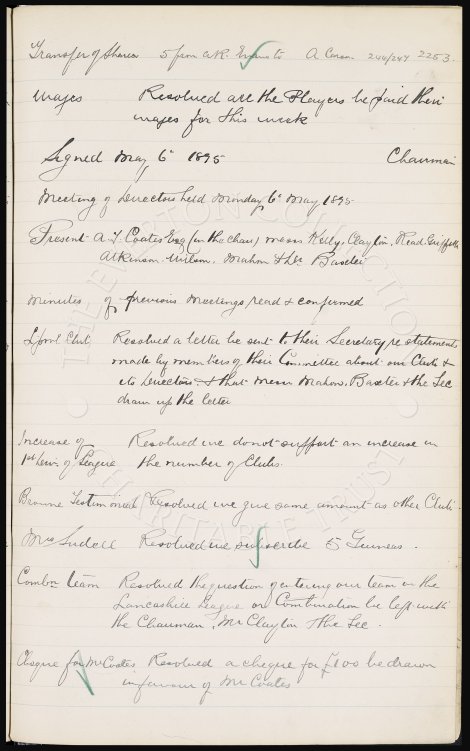 Transfer of Shares 5 from A.R. Evans to A Caron 244/247 2253.
Wages Resolved all the Players be paid their
wages for this week
Signed May 6th 1895 Chairman
Meeting of Directors held Monday 6th May 1895
Present A.T. Coates Esq (in the chair) Messrs Kelly, Clayton, Read, Griffiths
Atkinson Wilson, Mahon & Dr Baxter
Minutes of previous Meetings read & confirmed
Lpool Club Resolved a letter be sent to their Secretary re statements
made by members of their Committee about our Club &
its Directors & that Messrs Mahon, Baxter & the Sec
draw up the letter
Increase of Resolved we do not support an increase in
1st Divn of League the number of Clubs.
Testimonial Resolved we give same amount as other Clubs.
Mrs Sudell Resolved we subscribe 5 Guineas.
Combn team Resolved the question of entering our team in the
Lancashire League or Combination be left with
the Chairman, Mr Clayton & the Sec.
Cheque for Mr Coates Resolved a cheque for £100 be drawn
in favour of Mr Coates
THE EVERTON COLLECTION
CHARITABLE TRUST